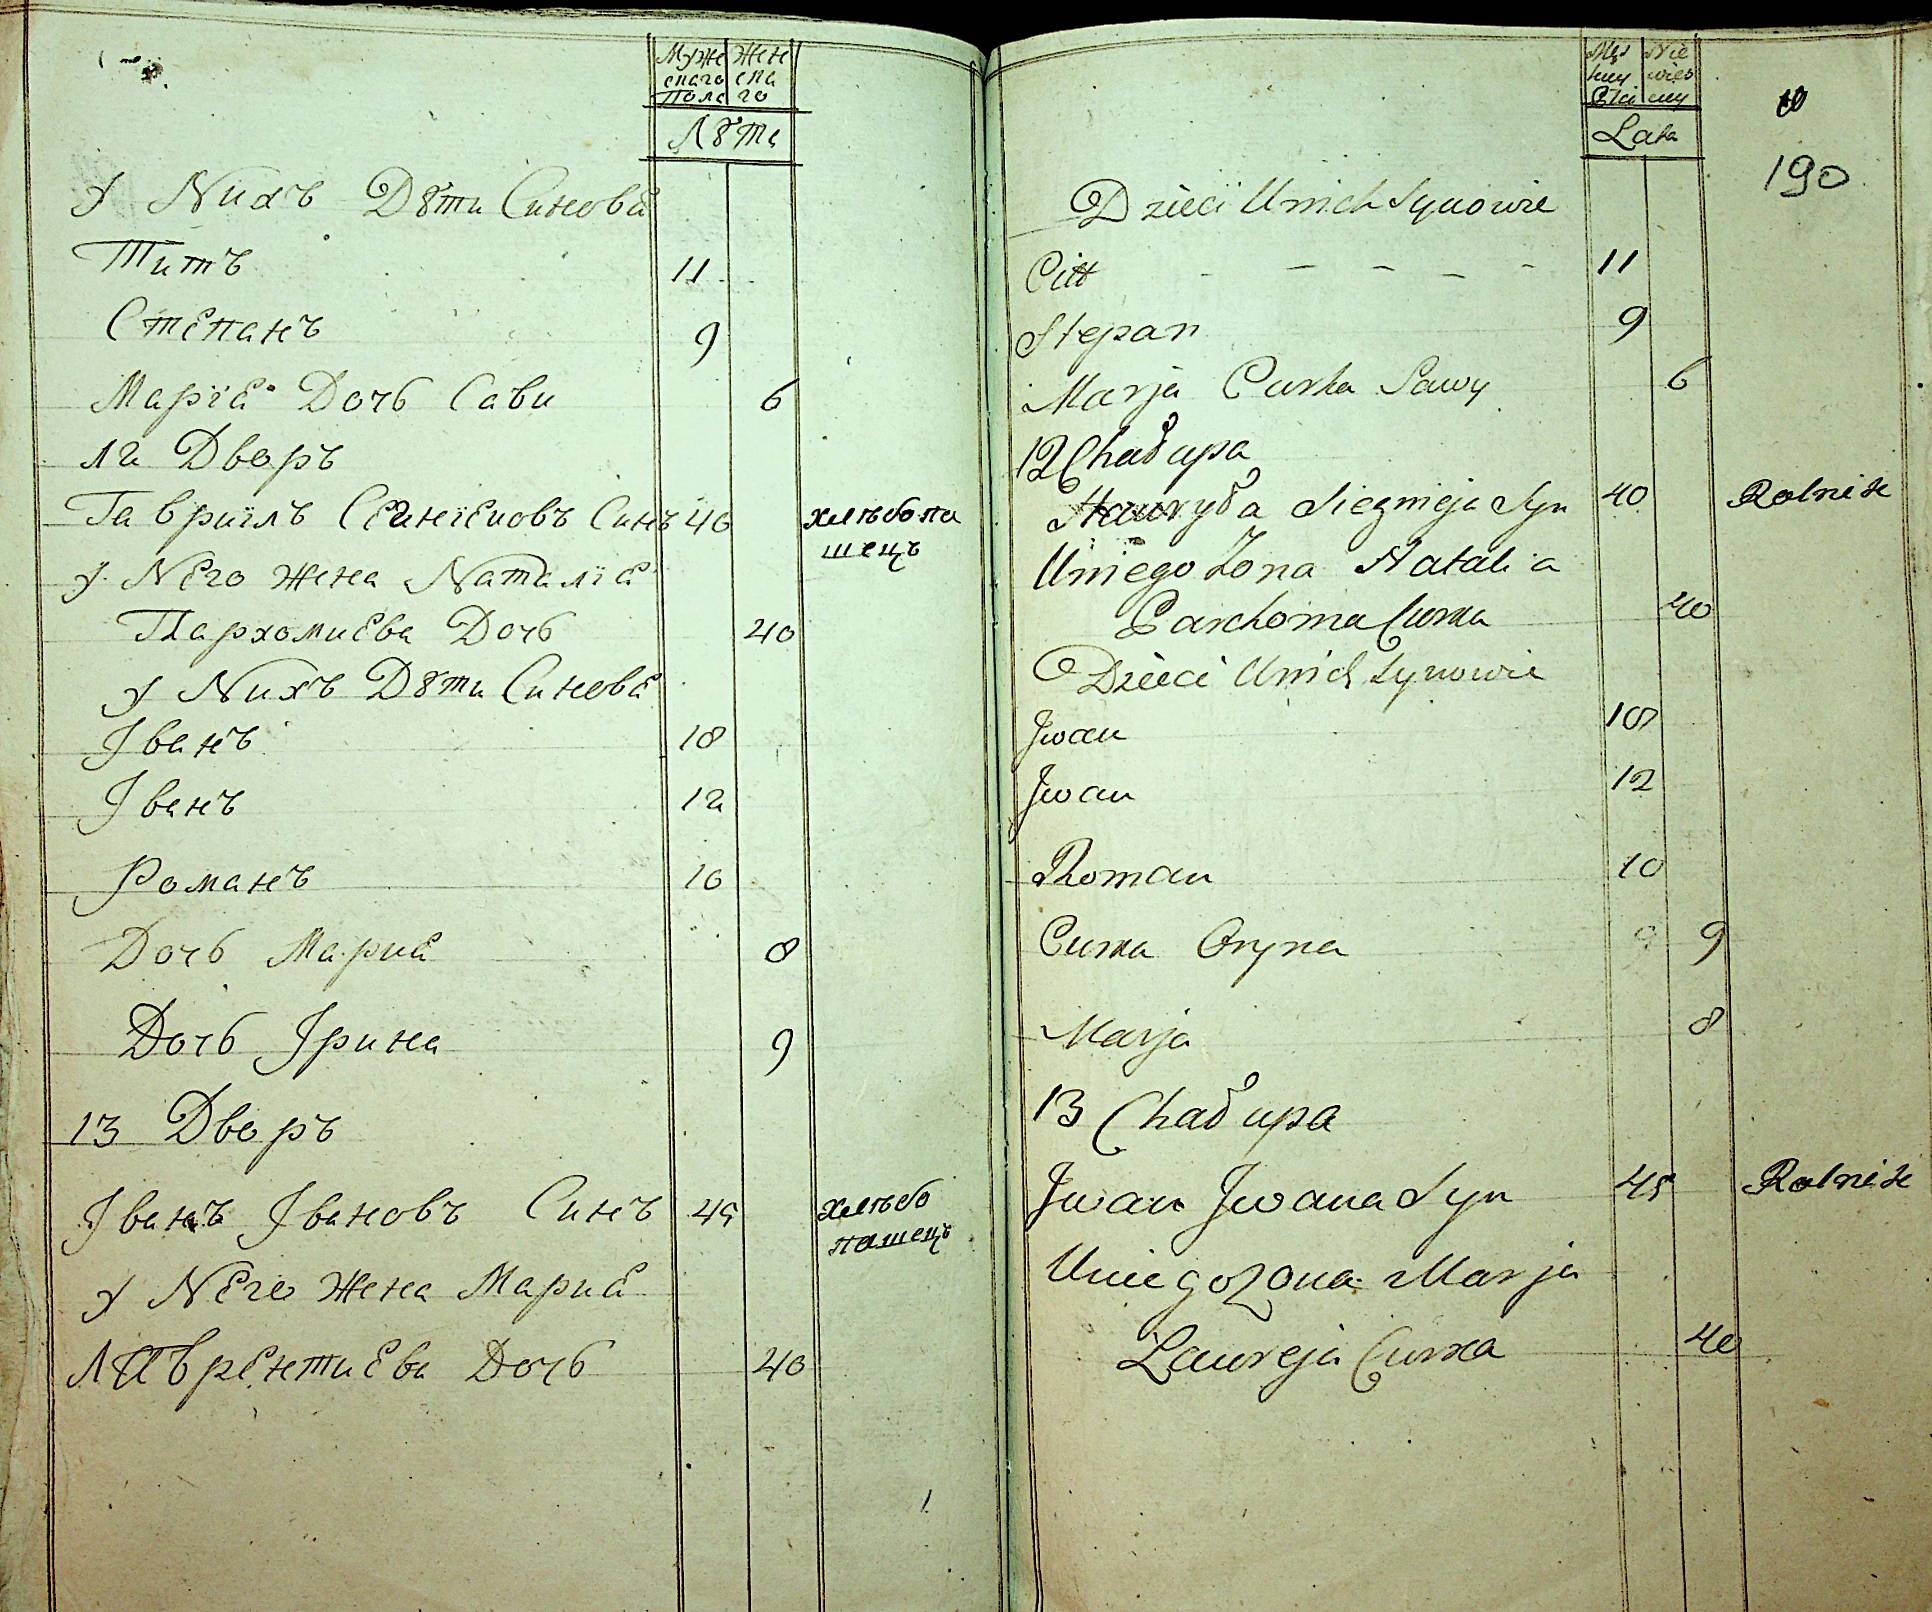 Муже Жен
скаго ска
Пола го
Лѣта
У Nихъ Дѣти Синовѣ
Титъ 11
Стεпанъ 9
Маріε Дочь Сави 6
12 Дворъ
Гавриїлъ Синъ 40 хлѣбопа
шецъ
У Nεго Жена Nаталїε
Пархомиεва Дочь 40
У Nихъ Дѣти Синовε
Іванъ 18
Іванъ 12
Романъ 10
Дочь Мариε 8
Дочь Ірина 9
13 Дворъ
Іванъ Івановъ Синъ 45 хлѣбо
пашецъ
У Nεго Жена Мариε
Лаврεнтиεва Дочь 40
Męz Nie
key wies
Płci ciey
Lata
190
Dzieci Unich Synowie
Citt 11
Stepan 9
Marja Curka Sawy 6
12 Chałupa
Hawryła Syn 40 Rolnik
Uniego Zona Natalia
Parchoma Curka 40
Dzieci Unich Synowie
Jwan 18
Jwan 12
Roman 10
Curka Oryna 9 9
Marja 8
13 Chałupa
Jwan Jwana Syn 45 Rolnik
Uniego Zona Marja
Lawreja Curka 40